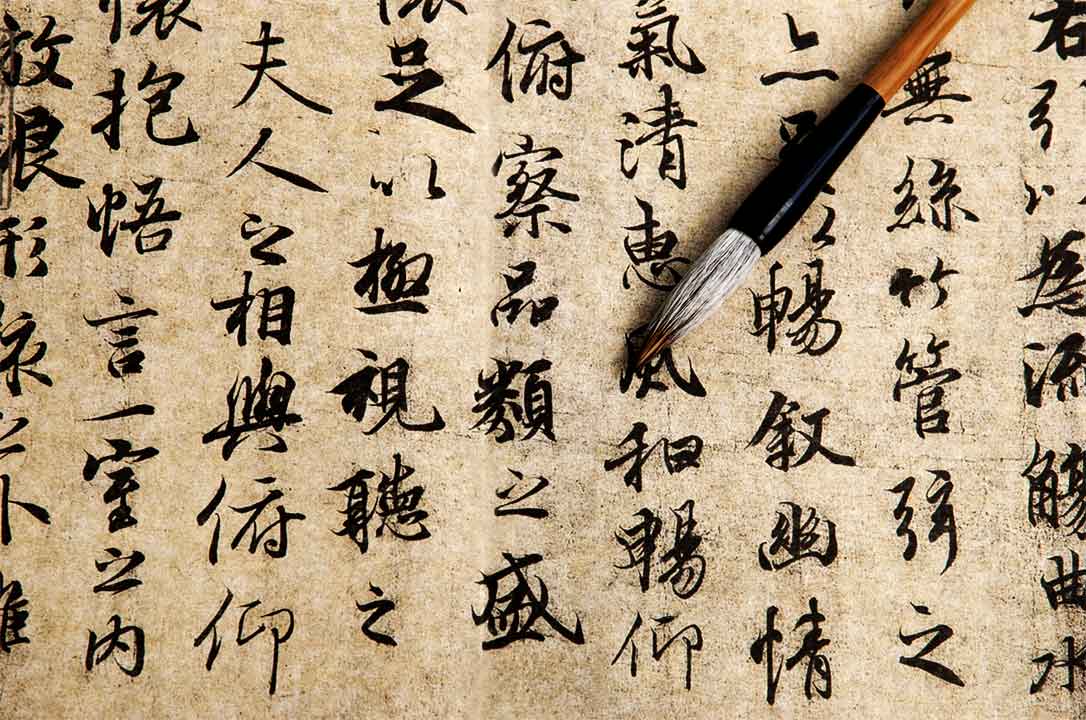 右引以為流觴曲水
無絲竹管弦之
亦足以暢叙幽情
氣清惠風和暢仰
俯察品類之盛
懷足以極視聽之
夫人之相與俯仰
懷抱悟言一室之內
放浪形骸之外雖